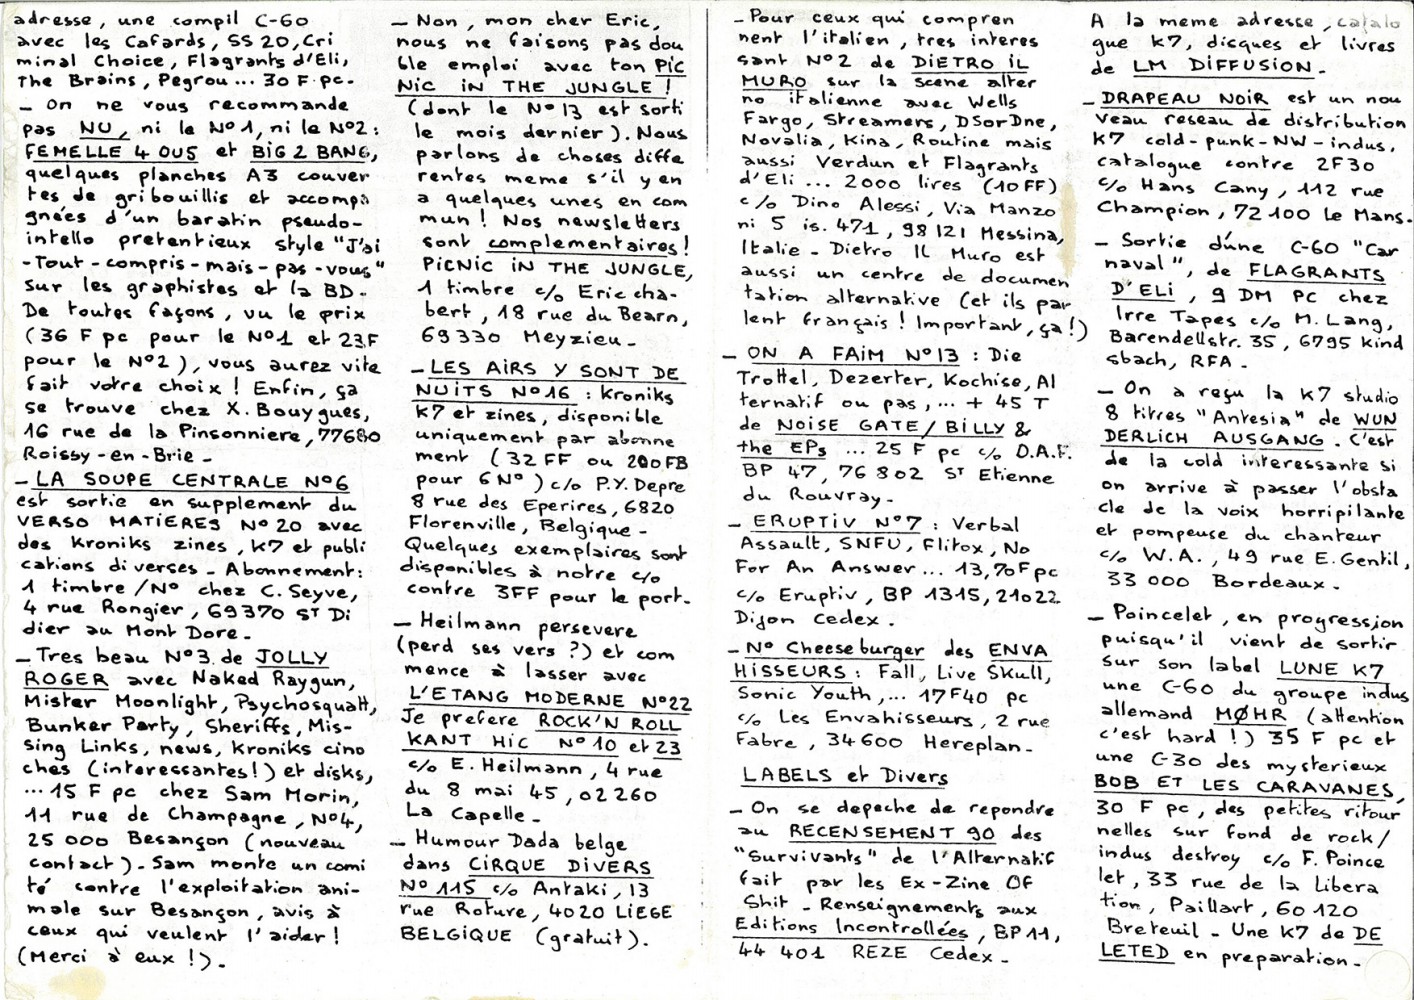 adresse, une compil C-60
avec les Cafards, SS 20, Cri
minal Choice, Flagrants d'Eli,
the Brains, Pegrou... 30 F. pc.
_ On ne vous recommande
pas NU, ni le N°1, ni le N°2:
FEMELLE 4 OUS et BIG 2 BANG,
quelques planches A3 couver
tes de gribouillis et accompa
gnées d'un baratin pseudo-
intello pretentieux style "J'ai
-Tout-compris-mais-pas-vous"
sur les graphistes et la BD.
De toutes façons, vu le prix
(36 F pc pour le N°1 et 23F
pour le N°2), vous aurez vite
fait votre choix! Enfin, ça
se trouve chez X. Bouygues,
16 rue de la Pinsonniere, 77680
Roissy-en-Brie_
_ LA SOUPE CENTRALE N°6
est sortie en supplement du
VERSO MATIERES N°20 avec
des kroniks zines, K7 et publi
cations diverses_ Abonnement:
1 timbre/N° chez C. Seyve,
4 rue Rongier, 69370 ST Di
dier au Mont Dore_
_ Tres beau N°3 de JOLLY
ROGER avec Naked Raygun,
Mister Moonlight, Psychosquatt,
Bunker Party, Sheriffs, Mis-
sing Links, news, kroniks cino
ches (interessantes!) et disks,
... 15 F pc chez Sam Morin,
11 rue de Champagne, N°4,
25 000 Besançon (nouveau
contact)_ Sam monte un comi
té contre l'exploitation ani-
male sur Besançon, avis à
ceux qui veulent l'aider!
(Merci à eux!)_
_ Non, mon cher Eric,
nous ne faisons pas dou
ble emploi avec ton PIC
NIC IN THE JUNGLE!
(dont le N°13 est sorti
le mois dernier). Nous
parlons de choses diffe
rentes meme s'il y en
a quelques unes en com
mun! Nos newsletters
sont complementaires!
PICNIC IN THE JUNGLE,
1 timbre c/o Eric cha-
bert, 18 rue du Bearn,
69330 Meyzieu_
_ LES AIRS Y SONT DE
NUITS N°16 : kroniks
K7 et zines, disponible
uniquement par abonne
ment (32 FF ou 200 FB
pour 6 N°) c/o P.Y. Depre
8 rue des Eperires, 6820
Florenville, Belgique_
Quelques exemplaires sont
disponibles à notre c/o
contre 3FF pour le port_
_ Heilmann persevere
(perd ses vers?) et com
mence à lasser avec
L'ETANG MODERNE N°22
Je prefere ROCK'N ROLL
KANT HIC N°10 et 23
c/o E. Heilmann, 4 rue
du 8 mai 45, 02260
La Capelle_
_ Humour Dada belge
dans CIRQUE DIVERS
N°115 c/o Antaki, 13
rue Roture, 4020 LIEGE
BELGIQUE (gratuit).
_ Pour ceux qui compren
nent l'italien, tres interes
sant N°2 de DIETRO IL
MURO sur la scene alter
no italienne avec Wells
Fargo, Streamers, DSorDne,
Novalia, Kina, Routine mais
aussi Verdun et Flagrants
d'Eli ... 2000 lires (10FF)
c/o Dino Alessi, Via Manzo
ni 5 is. 471, 98121 Messina,
Italie_ Dietro Il Muro est
aussi un centre de documen
tation alternative (et ils par
lent français! Important, ça!)
_ ON A FAIM N°13 : Die
Trottel, Dezerter, Kochise, Al
ternatif ou pas, ... + 45 T
de NOISE GATE/BILLY &
the EPs ... 25 F pc c/o O.A.F.
BP 47, 76 802 ST Etienne
du Rouvray_
_ ERUPTIV N°7 : Verbal
Assault, SNFU, Flitox, No
For An Answer... 13,70F pc
c/o Eruptiv, BP 1315, 21022
Dijon cedex.
_ N° Cheeseburger des ENVA
HISSEURS : Fall, Live Skull,
Sonic Youth,... 17F40 pc
c/o Les Envahisseurs, 2 rue
Fabre, 34600 Hereplan_
LABELS et Divers
_ On se depeche de repondre
au RECENSEMENT 90 des
"Survivants" de l'Alternatif
fait par les Ex-Zine OF
Shit_ Renseignements aux
Editions Incontrollées, BP 11,
44 401 REZE Cedex_
A la meme adresse, catalo
gue K7, disques et livres
de LM DIFFUSION_
_ DRAPEAU NOIR est un nou
veau reseau de distribution
K7 cold-punk-NW-indus,
catalogue contre 2F30
c/o Hans Cany, 112 rue
Champion, 72 100 le Mans.
_ Sortie d'une C-60 "Car
naval", de FLAGRANTS
D'ELI, 9 DM PC chez
Irre Tapes c/o M. Lang,
Barendellstr. 35, 6795 Kind
sbach, RFA_
_ On a reçu la K7 studio
8 titres "Antesia" de WUN
DERLICH AUSGANG. C'est
de la cold interessante si
on arrive à passer l'obsta
cle de la voix horripilante
et pompeuse du chanteur
c/o W.A., 49 rue E. Gentil,
33 000 Bordeaux_
_ Poincelet, en progression
puisqu'il vient de sortir
sur son label LUNE K7
une C-60 du groupe indus
allemand MØHR (attention
c'est hard!) 35 F pc et
une C-30 des mysterieux
BOB ET LES CARAVANES,
30 F pc, des petites ritour
nelles sur fond de rock/
indus destroy c/o F. Poince
let, 33 rue de la Libera
tion, Paillart, 60 120
Breteuil_ Une K7 de DE
LETED en preparation_